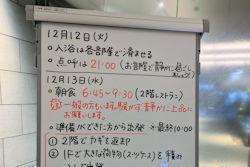 12月12日(火)
○入浴は各部屋で済ませる
○点呼は21:00 (お部屋で静かに過ごしましょう)
12月13日(水)
○朝食 6:45~9:30 (2階レストラン)
一般の方もいます。騒がず静かに上品にお願いします。
○準備ができた方から出発 最終10:00
①2階でカギを返却
②1Fで大きな荷物(スーツケース)を積み